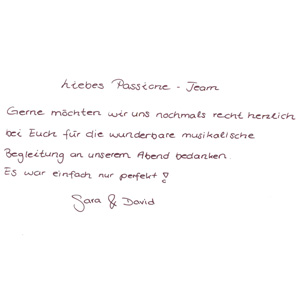 Liebes Passione - Team
Gerne möchten wir uns nochmals recht herzlich
bei Euch für die wunderbare musikalische
Begleitung an unserem Abend bedanken.
Es war einfach nur perfekt!
Sara & David